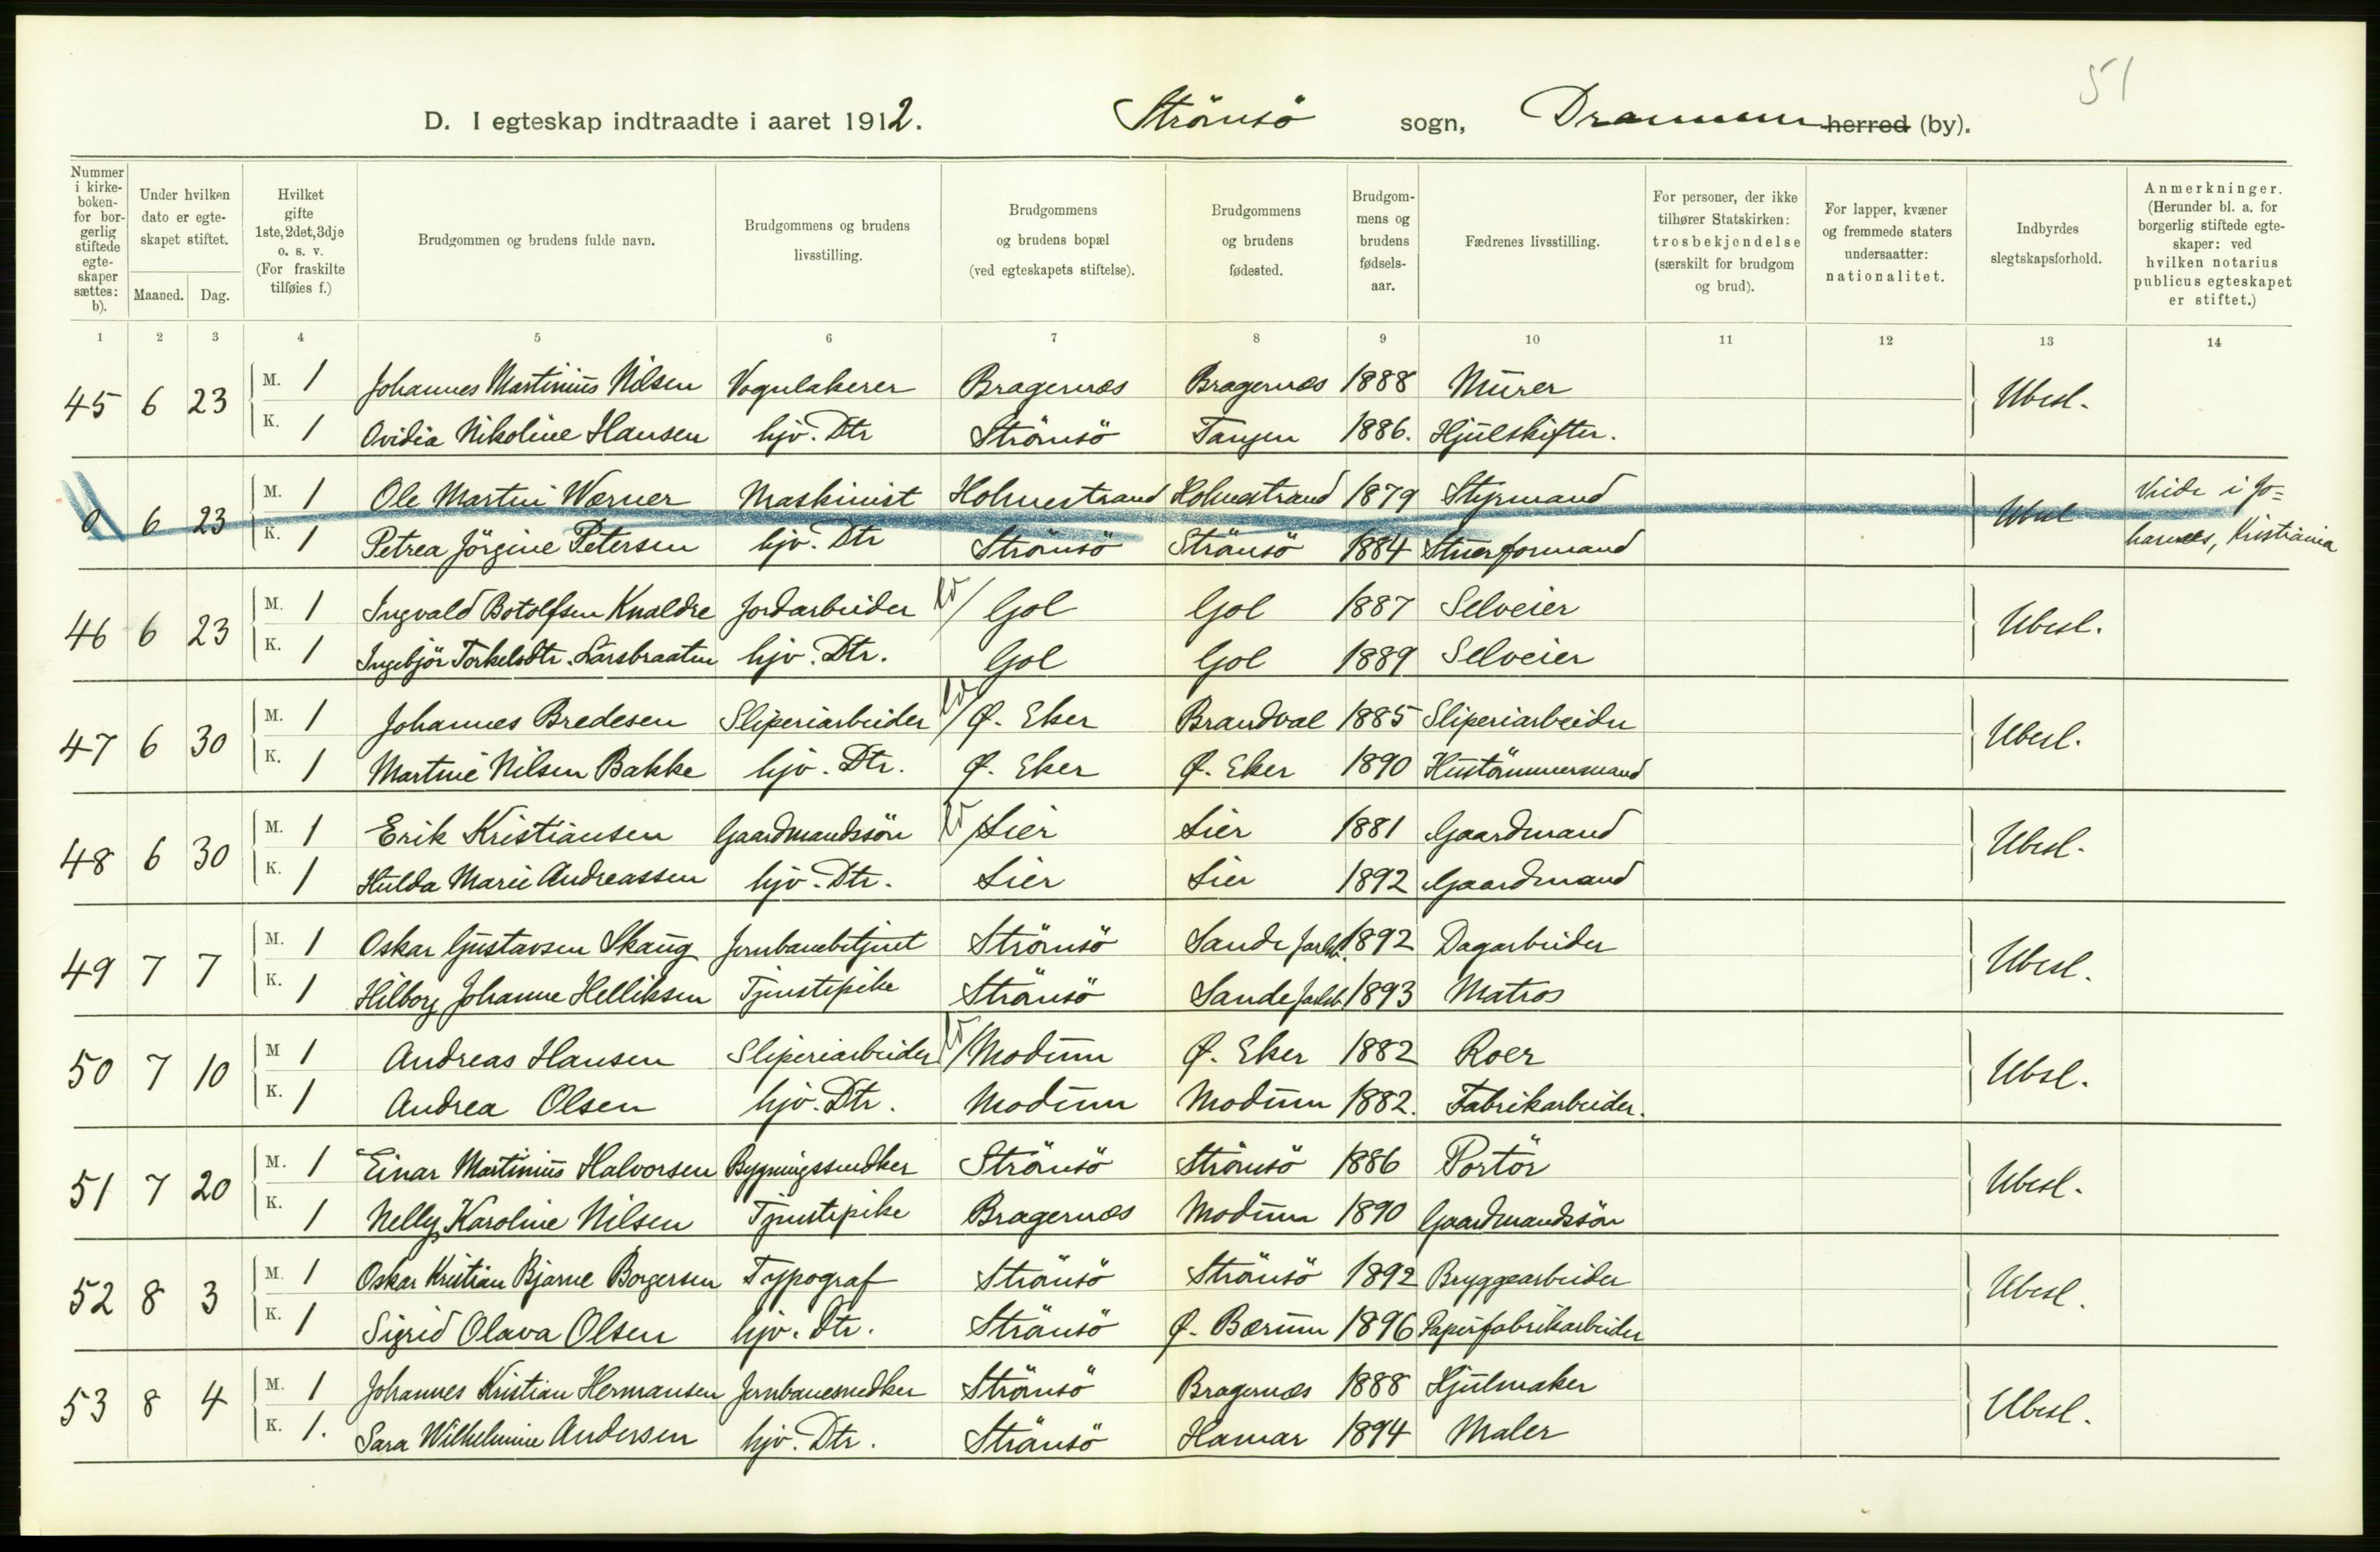 51
D. I egteskap indtraadte i aaret 1912. Strömsö sogn, Drammen herred (by).
Nummer i kirkeboken- for borgerlig stiftede egteskaper sættes: b).
Under hvilken dato er egteskapet stiftet.
Maaned. Dag.
Hvilket gifte 1ste, 2det, 3dje o. s. v. (For fraskilte tilføies f.)
Brudgommen og brudens fulde navn.
Brudgommens og brudens livsstilling.
Brudgommens og brudens bopæl (ved egteskapets stiftelse).
Brudgommens og brudens fødested.
Brudgommens og brudens fødselsaar.
Fædrenes livsstilling.
For personer, der ikke tilhører Statskirken: trosbekjendelse (særskilt for brudgom og brud).
For lapper, kvæner og fremmede staters undersaatter: nationalitet.
Indbyrdes slegtskapsforhold.
Anmerkninger. (Herunder bl. a. for borgerlig stiftede egteskaper: ved hvilken notarius publicus egteskapet er stiftet.)
1 2 3 4 5 6 7 8 9 10 11 12 13 14
45 6 23 M. 1 Johannes Martinius Nilsen Vognlakerer Bragernæs Bragernæs 1888 Murer Ubesl.
K. 1 Ovidia Nikoline Hansen hjv. Dtr Strömsö Tangen 1886. Hjulskifter.
0 6 23 M. 1 Ole Martin Werner Maskinist Holmestrand Holmestrand 1879 Styrmand Ubesl Viede i Jo=
K. 1 Petrea Jörgine Petersen hjv. Dtr Strömsö Strömsö 1884 Stuerformand hannes, Kristiania
46 6 23 M. 1 Ingvald Botolfsen Knaldre Jordarbeider Gol Gol 1887 Selveier Ubesl.
K. 1 Ingebjör Torkelsdtr. Larsbraaten hjv. Dtr. Gol Gol 1889 Selveier
47 6 30 M. 1 Johannes Bredesen Sliperiarbeider Ø. Eker Brandval 1885 Sliperiarbeider Ubesl.
K. 1 Martine Nilsen Bakke hjv. Dtr. Ø. Eker Ø. Eker 1890 Hustömmermand
48 6 30 M. 1 Erik Kristiansen Gaardmandssön Lier Lier 1881 Gaardmand Ubesl.
K. 1 Hulda Marie Andreassen hjv. Dtr. Lier Lier 1892 Gaardmand
49 7 7 M. 1 Oskar Gustavsen Skaug Jernbanebetjent Strömsö Sande Jarlsb. 1892 Dagarbeider Ubesl.
K. 1 Hilborg Johanne Helliksen Tjenestepike Strömsö Sande Jarlsb. 1893 Matros
50 7 10 M 1 Andreas Hansen Sliperiarbeider Modum Ø. Eker 1882 Roer Ubsl.
K. 1 Andrea Olsen hjv. Dtr. Modum Modum 1882. Fabrikarbeider.
51 7 20 M. 1 Einar Martinius Halvorsen Bygningssnedker Strömsö Strömsö 1886 Portör Ubesl.
K. 1 Nelly Karoline Nilsen Tjenestepike Bragernæs Modum 1890 Gaardmandssön
52 8 3 M. 1 Oskar Kristian Bjarne Borgersen Typograf Strömsö Strömsö 1892 Bryggearbeider Ubesl.
K. 1 Sigrid Olava Olsen hjv. Dtr. Strömsö Ø. Bærum 1896 Papirfabrikarbeider
53 8 4 M. 1 Johannes Kristian Hermansen Jernbanesnedker Strömsö Bragernæs 1888 Hjulmaker Ubesl.
K. 1. Sara Wilhelmine Andersen hjv. Dtr. Strömsö Hamar 1894 Maler